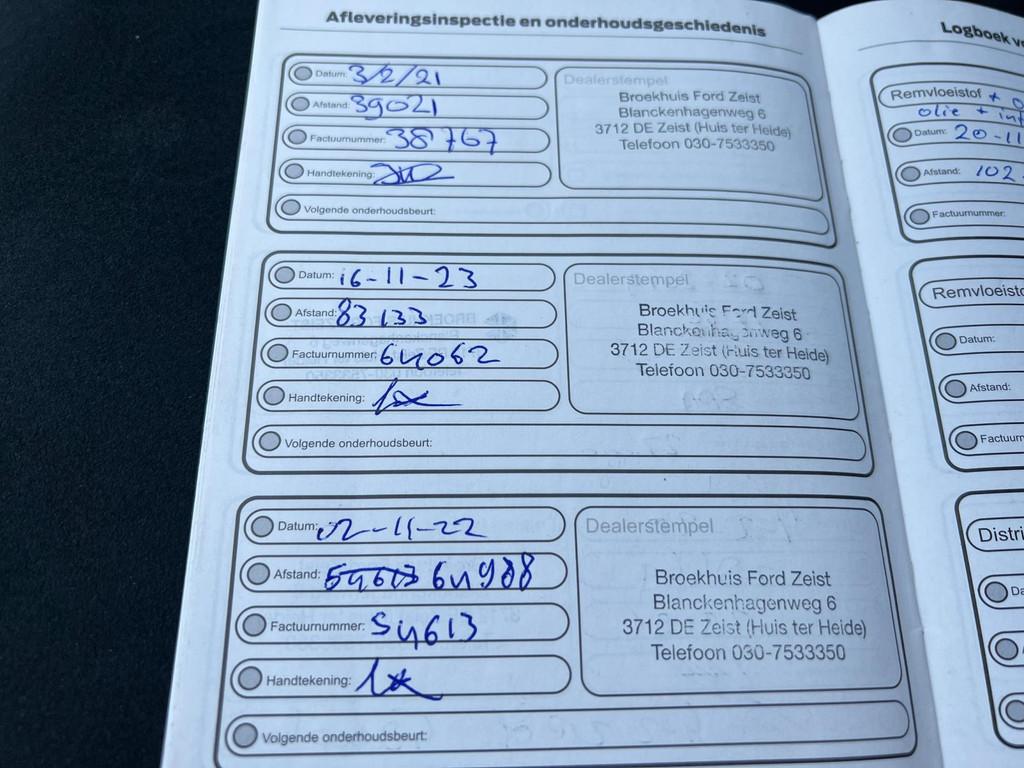 Afleveringsinspectie en onderhoudsgeschiedenis
Datum: 3/2/21
Afstand: 39021
Factuurnummer: 38767
Handtekening:
Volgende onderhoudsbeurt:
Dealerstempel
Broekhuis Ford Zeist
Blanckenhagenweg 6
3712 DE Zeist (Huis ter Heide)
Telefoon 030-7533350
Datum: 16-11-23
Afstand: 83133
Factuurnummer: 64062
Handtekening:
Volgende onderhoudsbeurt:
Dealerstempel
Broekhuis Ford Zeist
Blanckenhagenweg 6
3712 DE Zeist (Huis ter Heide)
Telefoon 030-7533350
Datum: 02-11-22
Afstand: 54613 64988
Factuurnummer: 54613
Handtekening:
Volgende onderhoudsbeurt:
Dealerstempel
Broekhuis Ford Zeist
Blanckenhagenweg 6
3712 DE Zeist (Huis ter Heide)
Telefoon 030-7533350
Logboek v
Remvloeistof + o
olie + inf
Datum: 20-11
Afstand: 102
Factuurnummer:
Remvloeisto
Datum:
Afstand:
Factuurn
Distri
Da
A